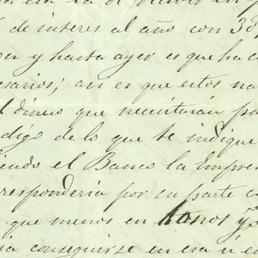 de interes al año con 38
en y hasta ayer es que ha c
esarios; asi es que estos na
l dinero que necesitarán pa
digo de lo que te indique
iendo el Banco la Empres
respondería por su parte c
que menos en
ia conseguirse en esa u o